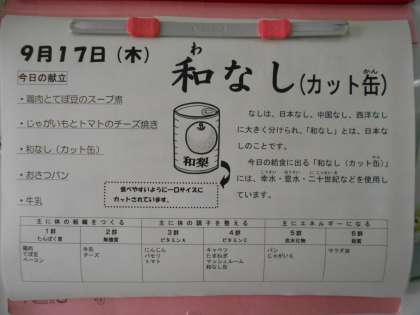 9月17日(木)
わ
和なし(カット缶)
かん
今日の献立
・鶏肉とてぼ豆のスープ煮
・じゃがいもとトマトのチーズ焼き
・和なし(カット缶)
・おさつパン
・牛乳
和梨
食べやすいように一口サイズに
カットされています。
なしは、日本なし、中国なし、西洋なし
に大きく分けられ、「和なし」とは、日本な
しのことです。
今日の給食に出る「和なし(カット缶)」
には、幸水・豊水・二十世紀などを使用し
ています。
主に体の組織をつくる 主に体の調子を整える 主にエネルギーになる
1群 2群 3群 4群 5群 6群
たんぱく質 無機質 ビタミンA ビタミンC 炭水化物 脂質
鶏肉 牛乳 にんじん キャベツ パン サラダ油
てぼ豆 チーズ パセリ たまねぎ じゃがいも
ベーコン トマト マッシュルーム
和なし缶